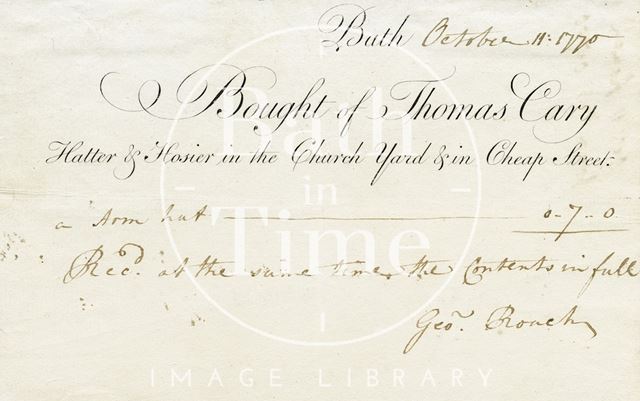 Bath October 11: 1770
Bought of Thomas Cary
Hatter & Hosier in the Church Yard & in Cheap Street.
a hat 0-7-0
Recd. at the same time the Contents in full
Geor. Rouch
Bath
in
Time
IMAGE LIBRARY